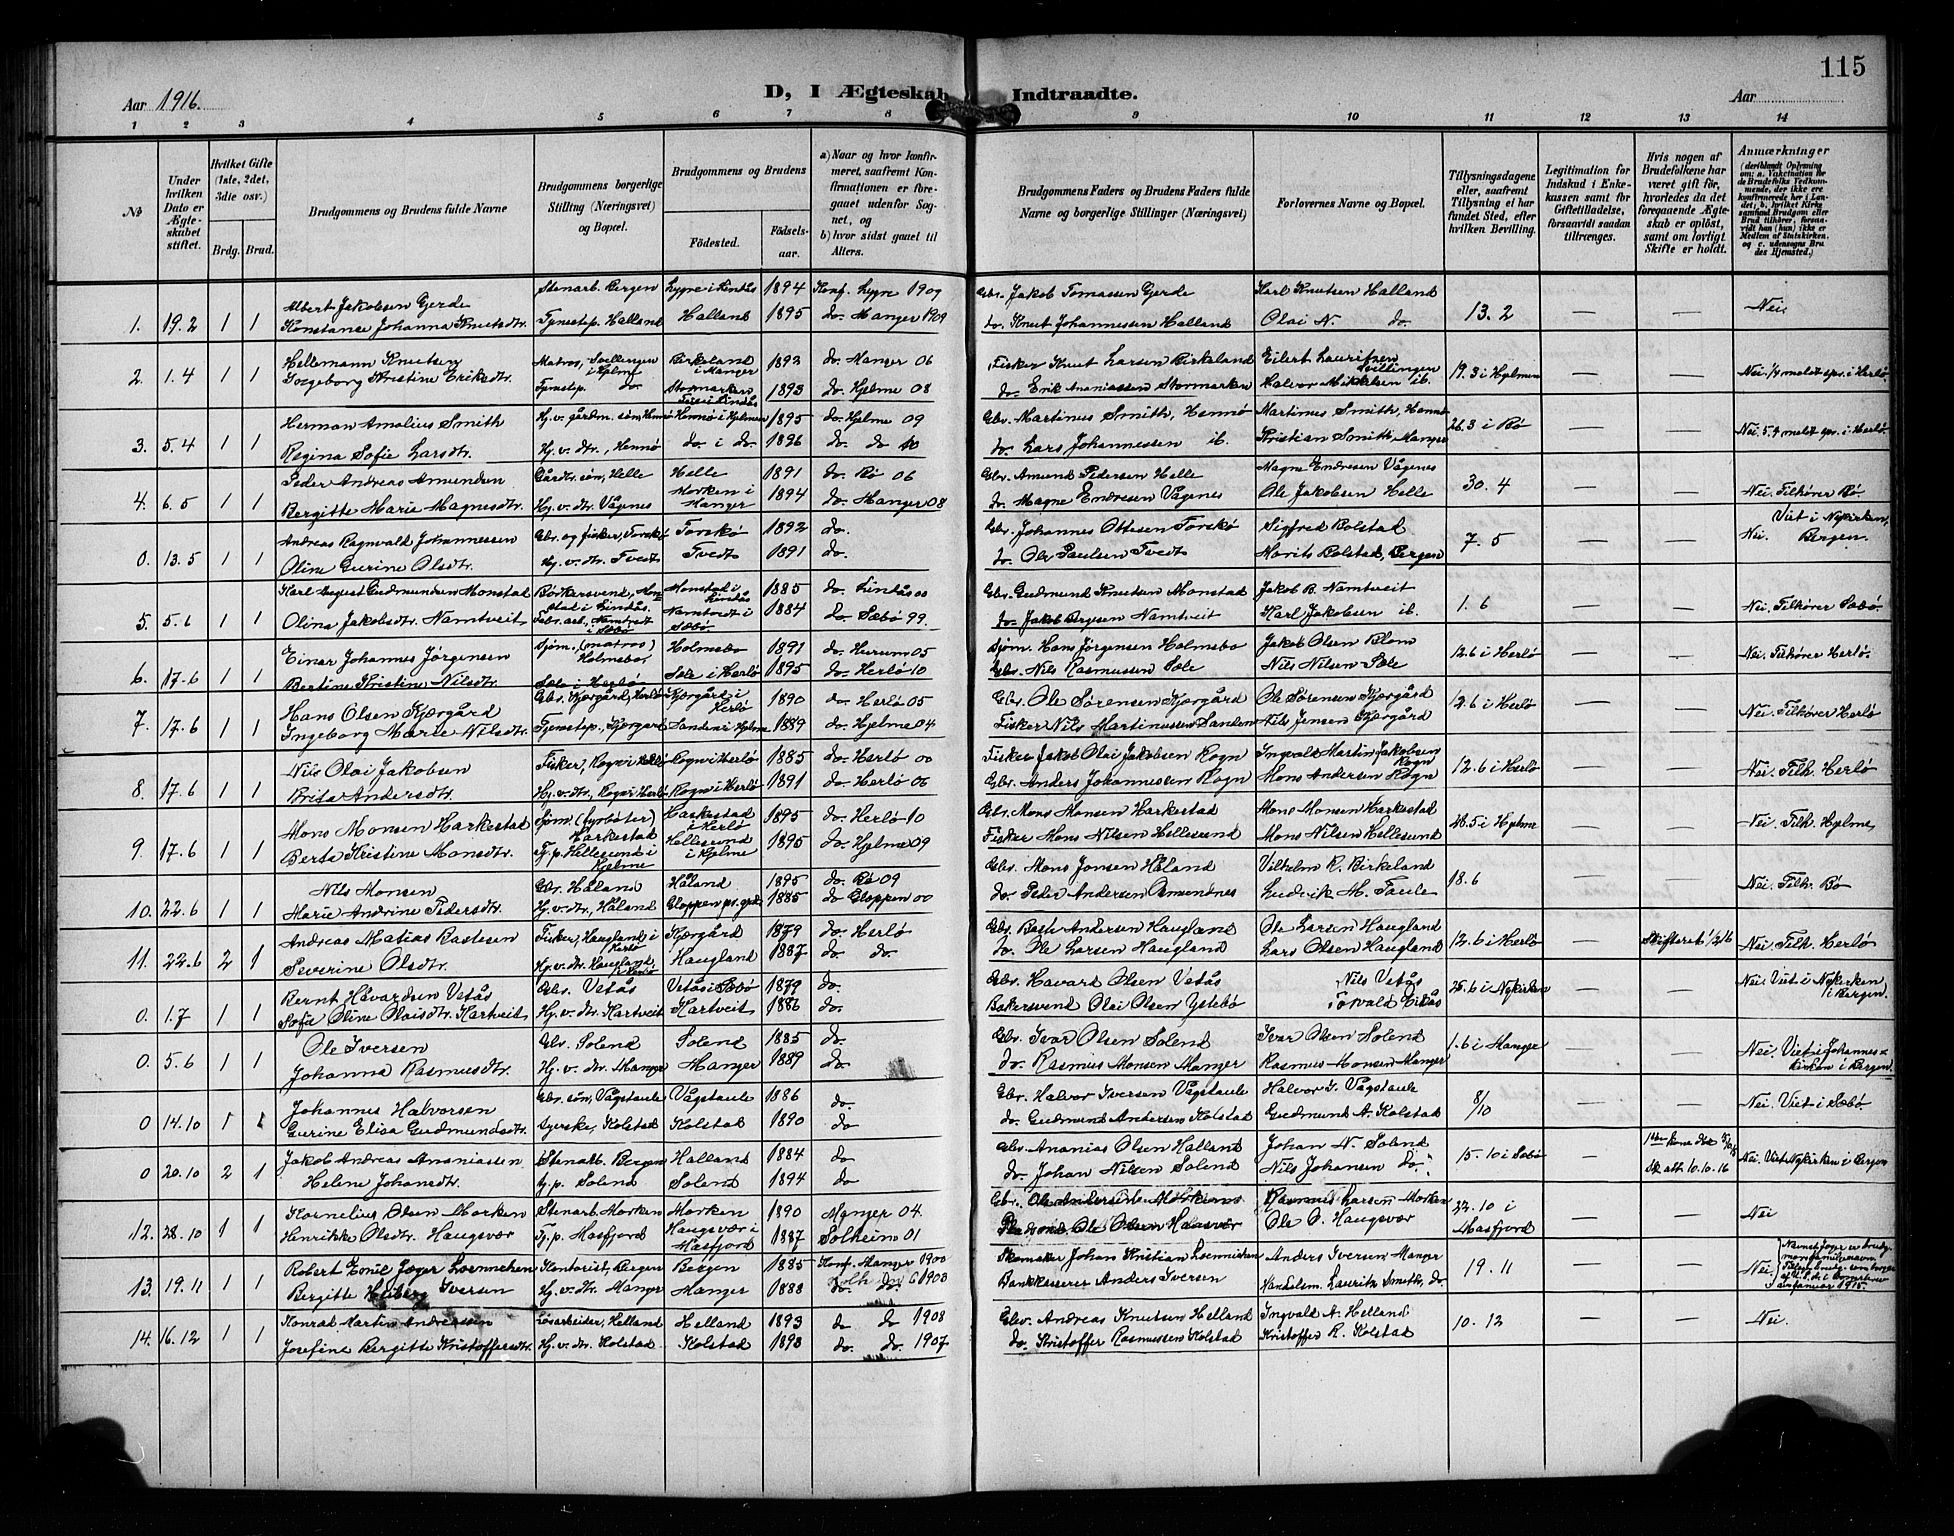 115
Aar 1916.
D, I Ægteskab Indtraadte.
Aar
1 2 3 4 5 6 7 8 9 10 11 12 13 14
No
Under hvilken Dato er Ægteskabet stiftet.
Hvilket Gifte (1ste, 2det, 3die osv.)
Brdg. Brud.
Brudgommens og Brudens fulde Navne
Brudgommens borgerlige Stilling (Næringsvei) og Bopæl.
Brudgommens og Brudens
Fødested.
Fødselsaar.
a) Naar og hvor konfirmeret, saafremt Konfirmationen er foregaaet udenfor Sognet, og
b) hvor sidst gaaet til Alters.
Brudgommens Faders og Brudens Faders fulde Navne og borgerlige Stillinger (Næringsvei)
Forlovernes Navne og Bopæl.
Tillysningsdagene eller, saafremt Tillysning ei har fundet Sted, efter hvilken Bevilling.
Legitimation for Indskud i Enkekassen samt for Giftetilladelse, forsaavidt saadan tiltrænges.
Hvis nogen af Brudefolkene har været gift før, hvorledes da det foregaaende Ægteskab er opløst, samt om lovligt Skifte er holdt.
Anmærkninger
(deriblandt Oplysning om: a. Vakcination for de Brudefolks Vedkommende, der ikke ere konfirmerede her i Landet; b. hvilket Kirkesamfund Brudgom eller Brud tilhører, forsaavidt han (hun) ikke er Medlem af Statskirken, og c. udensogns Brudes Hjemsted.)
1. 19.2 1 1 Albert Jakobsen Gerde Stenarb. Bergen Lygre i Lindås 1894 Konf. Lygre 1909 Gbr. Jakob Tomassen Gerde Karl Knutsen Halland 13.2 — — Nei
Konstanse Johanna Knutsdtr. Tjenestep. Halland Halland 1895 do. Manger 1909 do. Knut Johannessen Halland Olai N. do.
2. 1.4 1 1 Hellemann Knutsen Matros, Svellingen i Hjelme Birkeland i Manger 1893 do. Manger 06 Fisker Knut Larsen Birkeland Eilert Lauritzen Svellingen 19.3 i Hjelme — — Nei 1/4 meldt spr. i Herlø
Ingeborg Kristine Eriksdtr. Tjenstep. do. Stormarken 1893 do. Hjelme 08 do. Erik Ananiassen Stormarken Halvor Mikkelsen ib.
3. 5.4 1 1 Herman Amalius Smith Hj.v. gårdm. søn, Hennø Hennø i Hjelme 1895 do. Hjelme 09 Gbr. Martinus Smith, Hennø Martinus Smith, Hennø 26.3 i Bø — — Nei 5.4 meldt spr. i Herlø
Regina Sofie Larsdtr. Hj.v.dtr., Hennø do. i do. 1896 do. do. do. Lars Johannessen ib. Kristian Smith, Manger
4. 6.5 1 1 Peder Andreas Amundsen Gårdbr. søn, Helle Helle 1891 do. Bø 06 Gbr. Amund Pedersen Helle Magne Endresen Vågenes 30.4 — — Nei. Tilhører Bø.
Bergitte Marie Magnesdtr. Hj.v.dtr. Vågnes Morken i Manger 1894 do. Manger 08 do. Magne Endresen Vågnes Ole Jakobsen Helle
0. 13.5 1 1 Andreas Ragnvald Johannessen Gbr. og fisker, Torskø Toskø 1892 do. Gbr. Johannes Ottesen Torskø Sigfred Bolstad 7.5 — — Nei. Viet i Nykirken, Bergen.
Oline Gurine Olsdtr. Hj.v.dtr. Tvedt Tvedt 1891 do. do. Ole Paulsen Tvedt Morits Bolstad, Bergen
5. 5.6 1 1 Karl August Gudmundsen Monstad Bøtkersvend, Monstad i Lindås. Monstad i Lindås 1885 do. Lindås 00 Gbr. Gudmund Knutsen Monstad Jakob B. Namtveit 1.6 — — Nei. Tilhører Sæbø
Olina Jakobsdtr. Namtveit Fabr. arb., Namtvedt i Sæbø Namtvedt i Sæbø. 1884 do. Sæbø 99. do. Jakob Bergesen Namtveit Karl Jakobsen ib.
6. 17.6 1 1 Einar Johannes Jørgensen Sjøm. (matros) Holmsbo, Holmsbo 1891 do. Hurum 05 Sjøm. Hans Jørgensen Holmsbo Jakob Olsen Blom 12.6 i Herlø — — Nei. Tilhører Herlø.
Bertine Kristine Nilsdtr. Sæle i Herlø Sæle i Herlø 1895 do. Herlø 10 Gbr. Nils Rasmussen Sæle Nils Nilsen Sæle
7. 17.6 1 1 Hans Olsen Kjærgård Gbr. Kjærgård, Herlø Kjærgård i Herlø 1890 do. Herlø 05 Gbr. Ole Sørensen Kjærgård Ole Sørensen Kjærgård 12.6 i Herlø — — Nei. Tilhører Herlø
Ingeborg Marie Nilsdtr. Tjenestep. Kjærgård Sanden i Hjelme 1889 do. Hjelme 04 Fisker Nils Martinussen Sanden Nils Jensen Kjærgård
8. 17.6 1 1 Nils Olai Jakobsen Fisker, Rogn i Herlø Rogn i Herlø 1885 do. Herlø 00 Fisker Jakob Olai Jakobsen Rogn Ingvald Martin Jakobsen Rogn 12.6 i Herlø — — Nei. Tilh. Herlø
Brita Andersdtr. Hj.v.dtr., Rogn i Herlø Rogn i Herlø 1891 do. Herlø 06 Gbr. Anders Johannessen Rogn Mons Andersen Rogn
9. 17.6 1 1 Mons Monsen Harkestad Sjøm. (fyrbøter) Harkestad Harkestad i Herlø 1895 do. Herlø 10 Gbr. Mons Monsen Harkestad Mons Monsen Harkestad 28.5 i Hjelme — — Nei. Tilh. Hjelme
Berta Kristine Monsdtr. Tj.p. Hellesund i Hjelme Hellesund i Hjelme 1895 do. Hjelme 09 Fisker Mons Nilsen Hellesund Mons Nilsen Hellesund
10. 22.6 1 1 Nils Monsen Gbr. Håland Håland 1895 do. Bø 09 Gbr. Mons Jonsen Håland Vilhelm R. Birkeland 18.6 — — Nei. Tilh. Bø
Marie Andrine Pedersdtr. Hj.v.dtr., Håland Gloppen 1885 do. Gloppen 00 do. Peder Andersen Ludvik M. Taule
11. 22.6 2 1 Andreas Matias Rastesen Fisker, Haugland i Herlø Kjærgård 1879 do. Herlø Gbr. Raste Andersen Haugland Ole Larsen Haugland 12.6 i Herlø — Skifteret 1/2 16 Nei. Tilh. Herlø
Severine Olsdtr. Hj.v.dtr. Haugland, Herlø Haugland 1887 do. do. do. Ole Larsen Haugland Lars Olsen Haugland
0. 1.7 1 1 Bernt Håvardsen Vetås Gbr. Vetås Vetås i Sæbø 1879 do. Gbr. Havard Olsen Vetås Nils Vetås 25.6 i Nykirken — — Nei. Viet i Nykirken i Bergen.
Sofie Oline Olaisdtr. Hartveit Hj.v.dtr. Hartveit Hartveit 1886 do. Bakersvend Olai Olsen Ystebø
0. 5.6 1 1 Ole Iversen Gbr. Solend Solend 1885 do. Gbr. Ivar Olsen Solend Ivar Olsen Solend 1.6 i Manger — — Nei. Viet i Johanneskirken i Bergen
Johanna Rasmusdtr. Hj.v.dtr. Manger Manger 1889 do. do. Rasmus Monsen Manger Rasmus Monsen Manger
0 14.10 1 1 Johannes Halvorsen Gbr. søn, Vågstaule Vågstaule 1886 do Gbr. Halvor Iversen Vågstaule Halvor I. Vågstaule 8/10 — — Nei. Viet i Sæbø.
Gurine Elisa Gudmundsdtr. Syerske, Kolstad Kolstad 1890 do do. Gudmund Andersen Kolstad Gudmund A. Kolstad
0 20.10 2 1 Jakob Andreas Ananiassen Stenarb. Bergen Halland 1884 do Gbr. Ananias Olsen Halland Johan N. Solend 15.10 i Sæbø — 10.10.16 Nei. Viet Nykirken i Bergen
Helene Johansdtr. Tj.p. Solend Solend 1894 do do. Johan Nilsen Solend Nils Johansen do.
12. 28.10 1 1 Kornelius Olsen Morken Stenarb. Morken Morken 1890 Manger 04. Rasmus Larsen Morken 22.10 i Masfjord — — Nei
Henrikke Olsdtr. Haugsvær Tj.p. Masfjord Haugsvær i Masfjord 1887 Solheim 01 Ole O. Haugsvær
13. 19.11 1 1 Robert Emil Jæger Loennechen Kontorist, Bergen Bergen 1885 Konf. Manger 1900 Skomaker Johan Kristian Loennichen Anders Iversen Manger 19.11 — — Nei
Bergitte Iversen Hj.v.dtr. Manger Manger 1888 do. do. 1903 Bankkasserer Anders Iversen Handelsm. Laurits Smith, do.
14. 16.12 1 1 Konrad Martin Andreassen Løsarbeider, Helland Helland 1893 do do 1908 Gbr. Andreas Knutsen Helland Ingvald A. Helland 10.12 — — Nei.
Josefine Bergitte Kristoffersdtr. Hj.v.dtr. Kolstad Kolstad 1893 do. do. 1907 do. Kristoffer Rasmussen Kolstad Kristoffer R. Kolstad